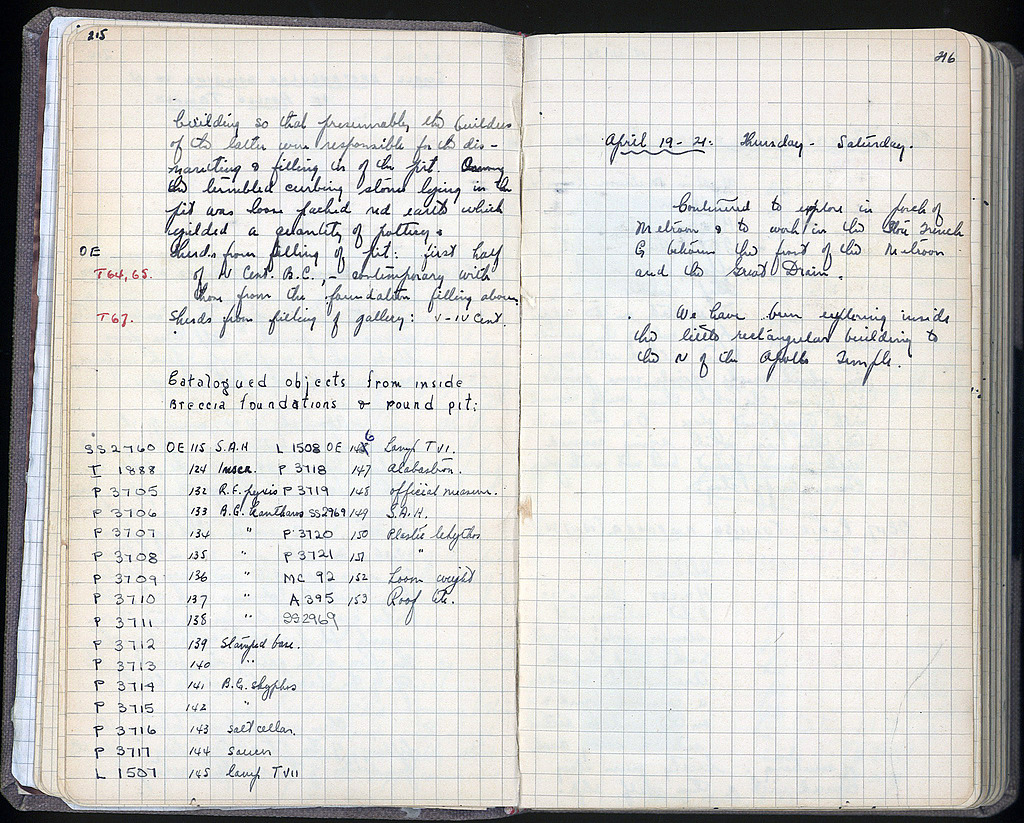 215
building so that presumably the builders
of the latter were responsible for the dis-
mantling & filling in of the pit. Among
the tumbled curbing stones lying in the
pit was loose packed red earth which
yielded a quantity of pottery.
OE Sherds from filling of pit: first half
T64,65. of IV Cent. B.C., - contemporary with
those from the foundation filling above.
T67. Sherds from filling of gallery: V-IV Cent.
Catalogued objects from inside
Breccia foundations & round pit:
SS2760 OE 115 S.A.H L 1508 OE 146 Lamp T VI.
I 1888 124 Inscr. P 3718 147 Alabastron.
P 3705 132 R.F. pyxis P 3719 148 official measure.
P 3706 133 B.G. Kantharos SS2969 149 S.A.H.
P 3707 134 " P 3720 150 Plastic lekythos
P 3708 135 " P 3721 151 "
P 3709 136 " MC 92 152 Loom weight
P 3710 137 " A 395 153 Roof tile.
P 3711 138 " SS2969
P 3712 139 Stamped base.
P 3713 140 "
P 3714 141 B.G. skyphos
P 3715 142 "
P 3716 143 salt cellar.
P 3717 144 saucer
L 1507 145 lamp T VII
216
April 19-21: Thursday - Saturday.
Continued to explore in porch of
Metroon & to work in the Stoa Trench
G between the front of the Metroon
and the Great Drain.
We have been exploring inside
the little rectangular building to
the N of the Apollo Temple.